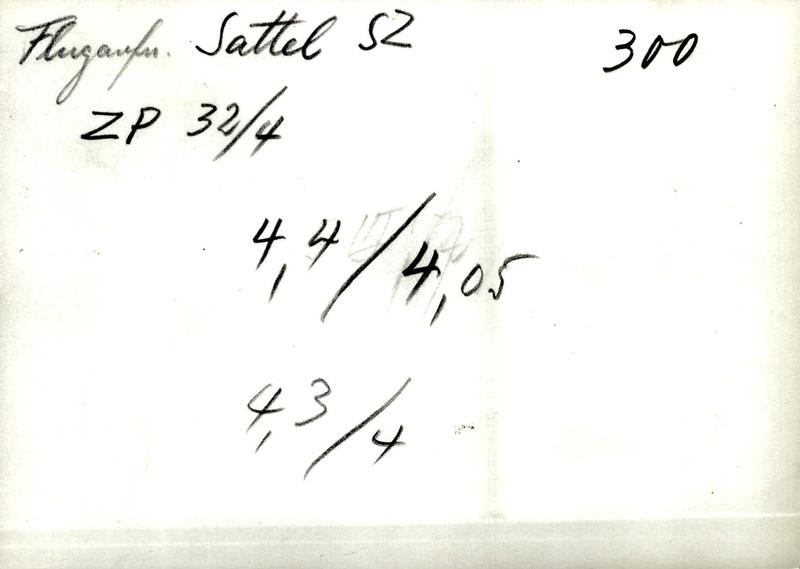 Flugaufn. Sattel SZ 300
ZP 32/4
4,4/4,05
4,3/4